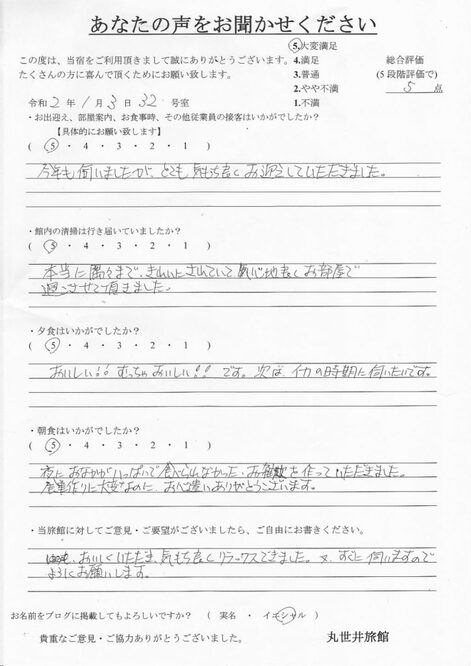 あなたの声をお聞かせください
この度は、当宿をご利用頂きまして誠にありがとうございます。
たくさんの方に喜んで頂くためにお願い致します。
5.大変満足
4.満足
3.普通
2.やや不満
1.不満
総合評価
(5段階評価で)
5 点
令和2年 1月3日 32 号室
・お出迎え、部屋案内、お食事時、その他従業員の接客はいかがでしたか？
【具体的にお願い致します】
( 5 ・ 4 ・ 3 ・ 2 ・ 1 )
今年も伺いましたが、とても気持ち良くお迎えしていただきました。
・館内の清掃は行き届いていましたか？
( 5 ・ 4 ・ 3 ・ 2 ・ 1 )
本当に隅々まで、きれいにされていて気心地良くお部屋で
過ごさせて頂きました。
・夕食はいかがでしたか？
( 5 ・ 4 ・ 3 ・ 2 ・ 1 )
おいしい!! むっちゃおいしい!! です。次は、イカの時期に伺いたいです。
・朝食はいかがでしたか？
( 5 ・ 4 ・ 3 ・ 2 ・ 1 )
夜におなかがいっぱいで食べられなかった、お雑炊を作っていただきました。
食事作りに大変なのに、お心遣いありがとうございます。
・当旅館に対してご意見・ご要望がございましたら、ご自由にお書きください。
おいしくいただき、気もち良くリラックスできました。又、すぐに伺いますので
よろしくお願いします。
お名前をブログに掲載してもよろしいですか？ ( 実名 ・ イニシャル )
貴重なご意見・ご協力ありがとうございました。
丸世井旅館